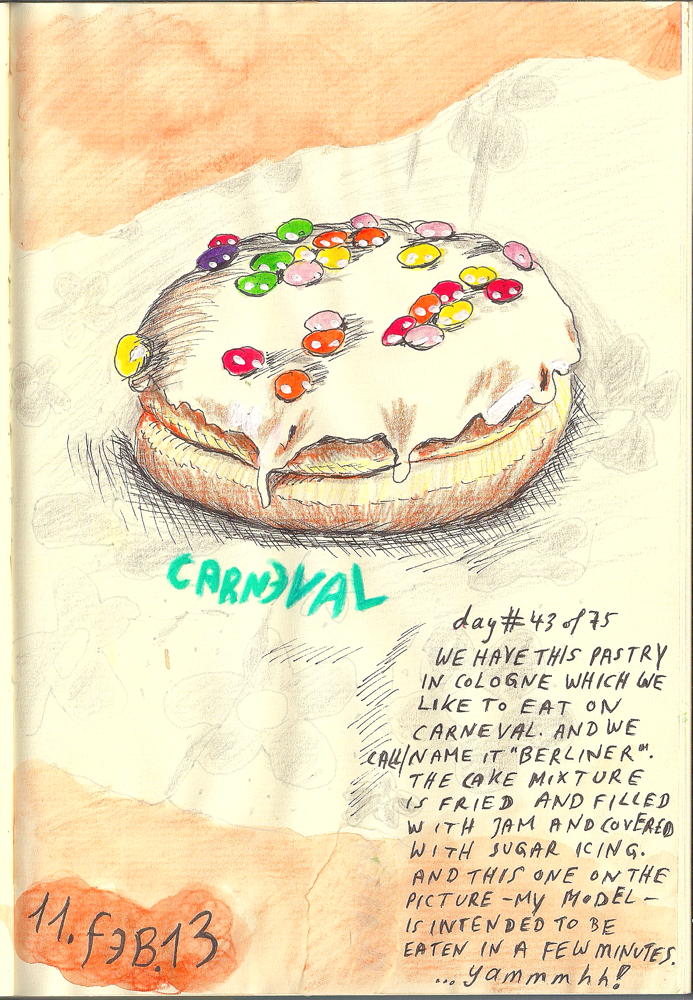 CARNEVAL
day # 43 of 75
WE HAVE THIS PASTRY
IN COLOGNE WHICH WE
LIKE TO EAT ON
CARNEVAL. AND WE
CALL/NAME IT "BERLINER".
THE CAKE MIXTURE
IS FRIED AND FILLED
WITH JAM AND COVERED
WITH SUGAR ICING.
AND THIS ONE ON THE
PICTURE - MY MODEL -
IS INTENDED TO BE
EATEN IN A FEW MINUTES.
... yammmhh!
11. FEB. 13